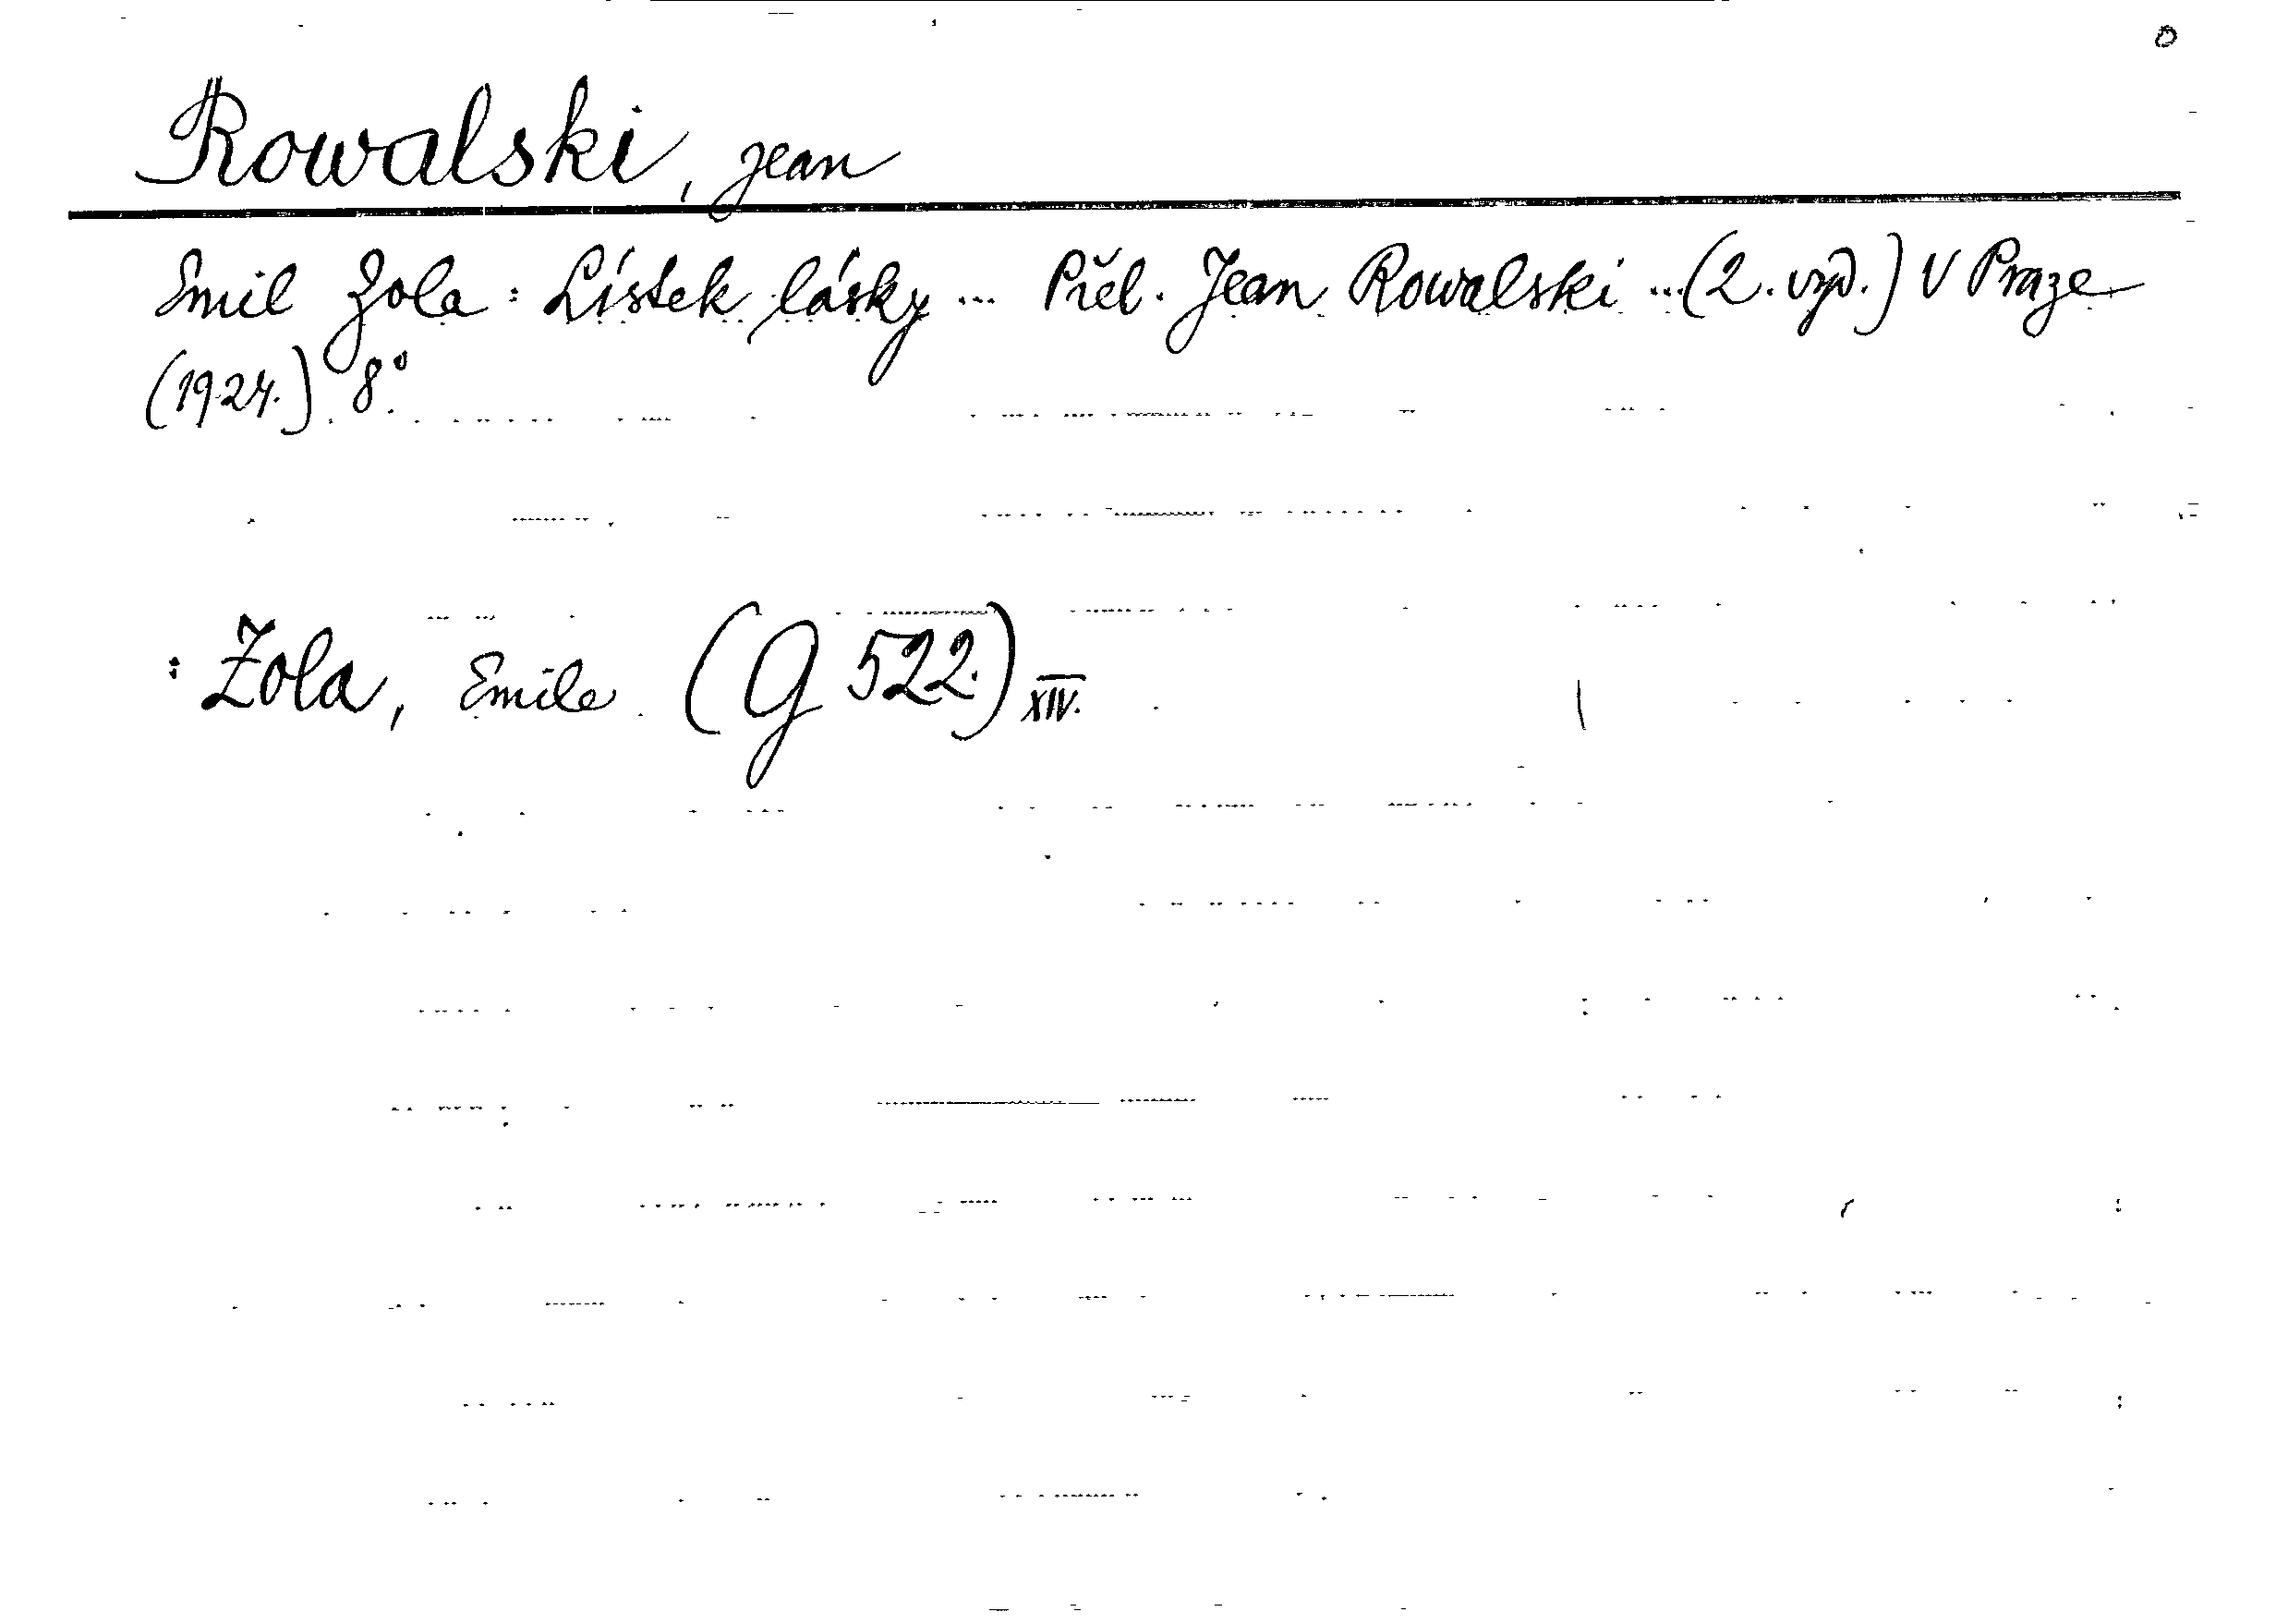 o
Rowalski, Jean
Emil Zola: Lístek lásky ... Přel. Jean Rowalski ... (2. vyd.) V Praze
(1924.) 8°.
: Zola, Emile (G 522.) XIV.